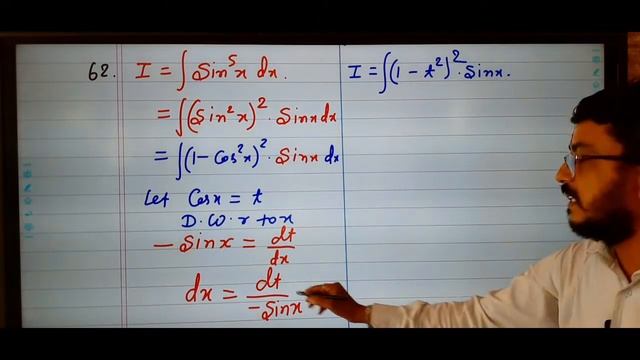 62. I = ∫ Sin⁵x dx.
= ∫(Sin²x)² · Sinx dx
= ∫(1 - Cos²x)² · Sinx dx
Let Cosx = t
D. W. r to x
- Sinx = dt/dx
dx = dt/-Sinx
I = ∫(1 - t²)² · Sinx.